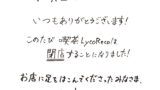 いつもありがとうございます!
このたび 喫茶LycoRecoは
閉店することになりました!
お店に足をはこんでくださったみなさま、